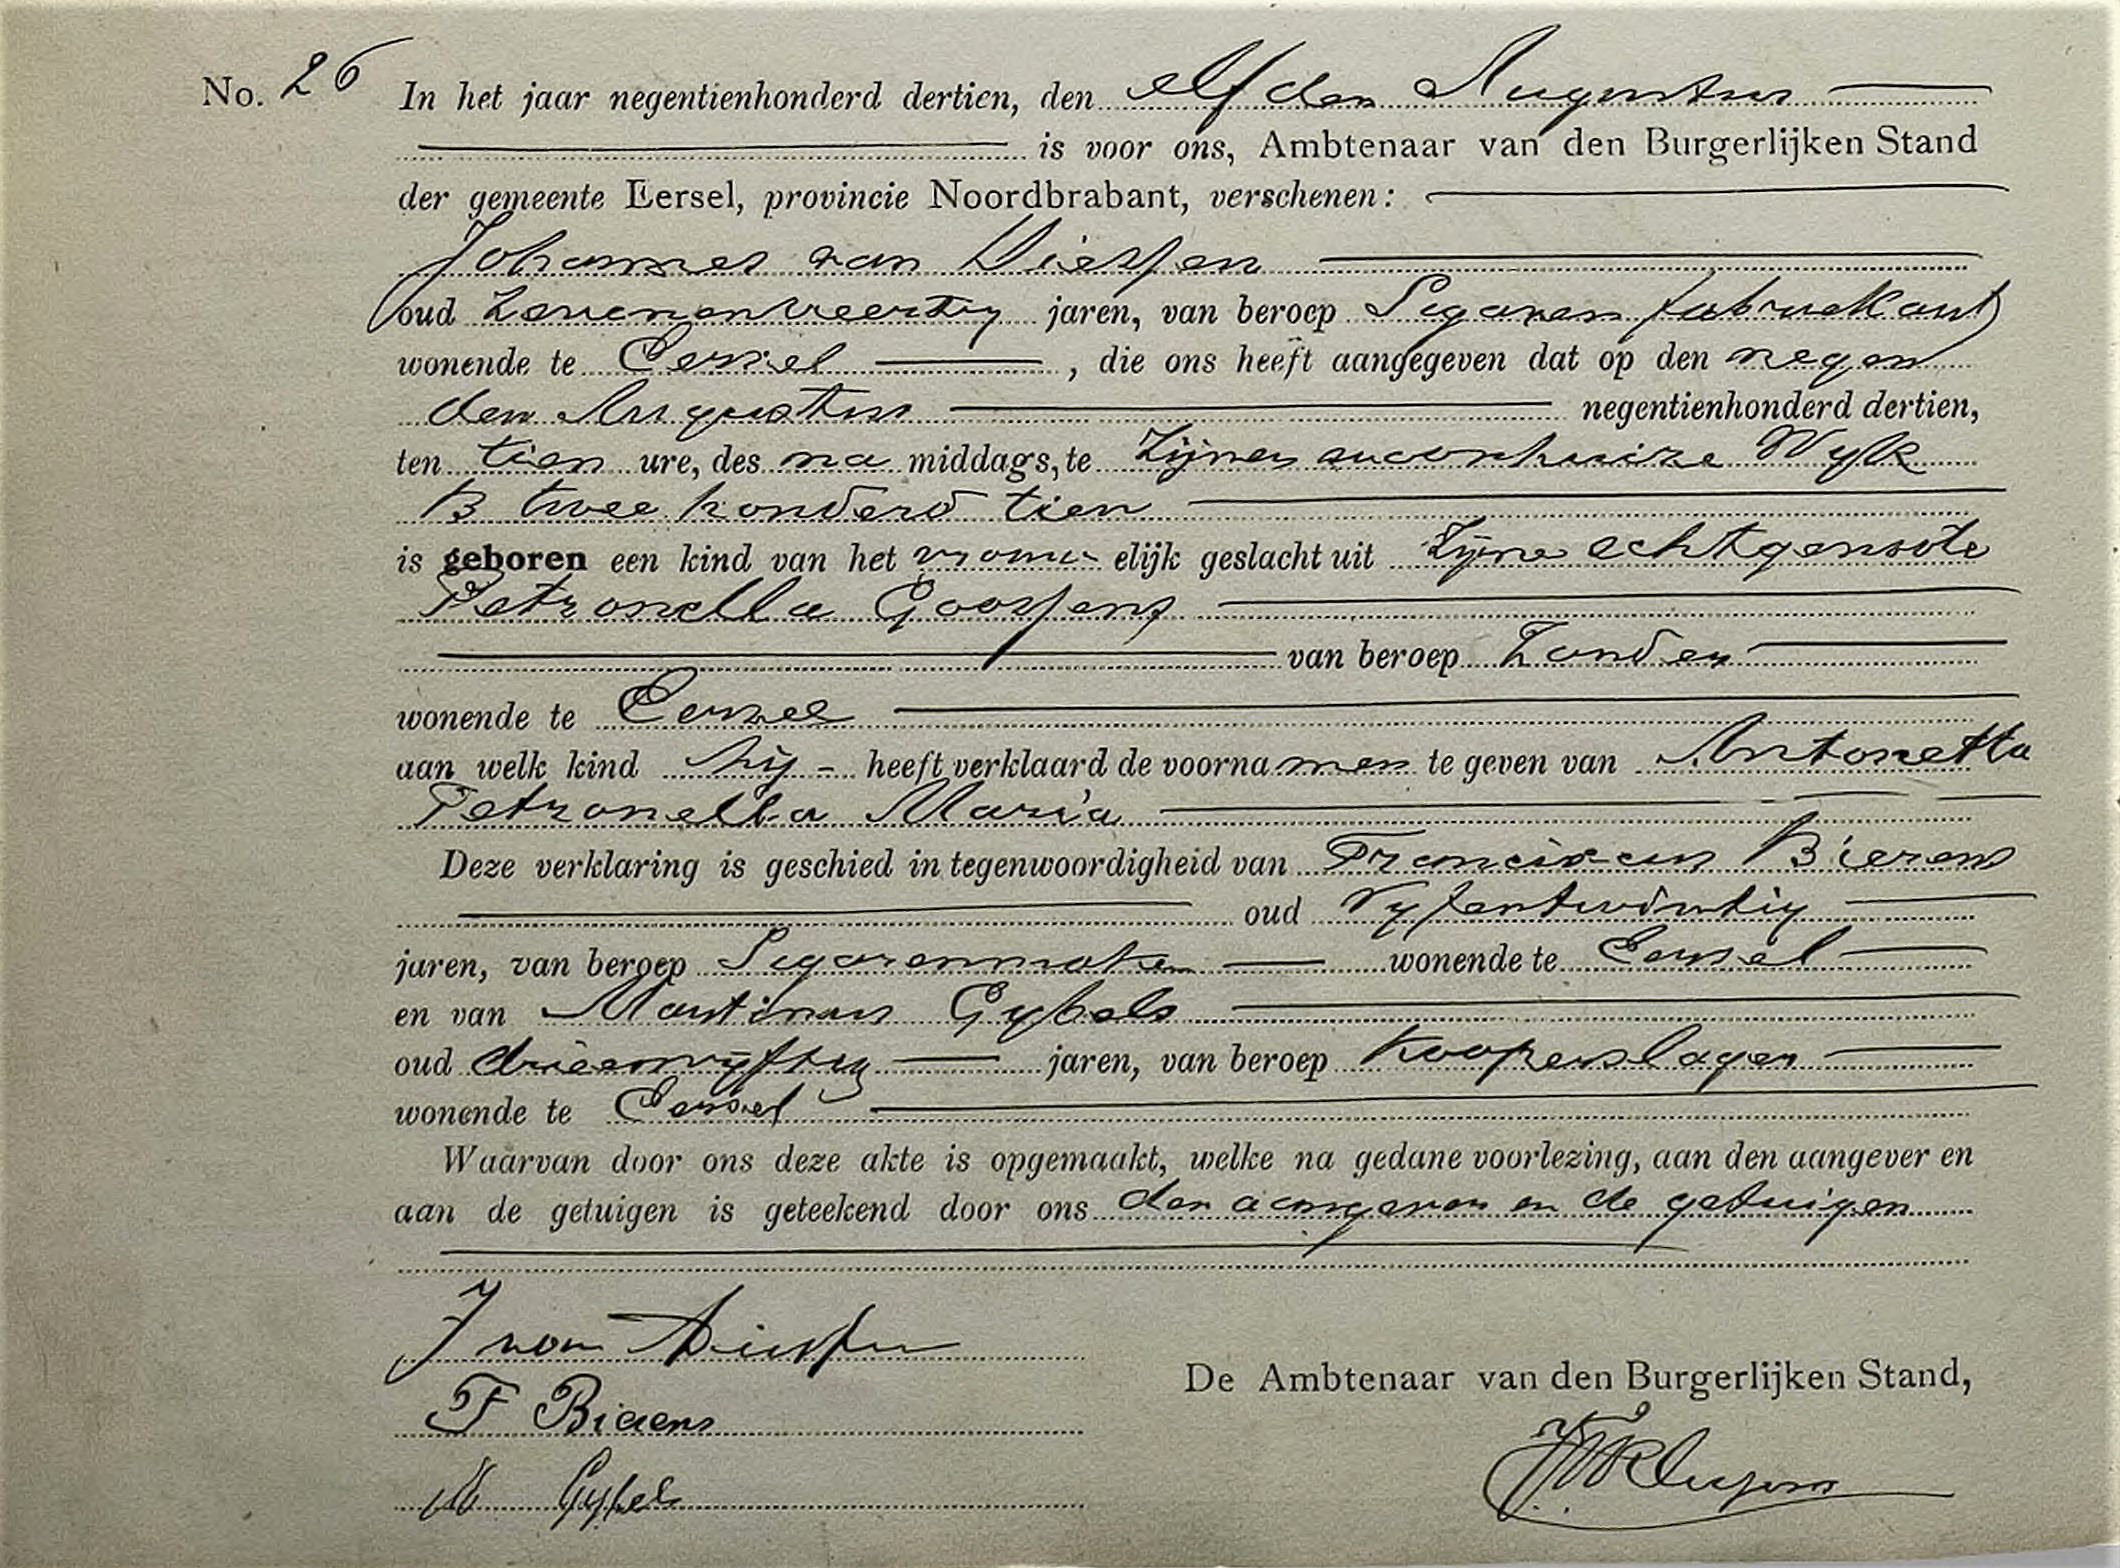 No. 26 In het jaar negentienhonderd dertien, den elfden Augustus
is voor ons, Ambtenaar van den Burgerlijken Stand
der gemeente Eersel, provincie Noordbrabant, verschenen:
Johannes van Diessen
oud zevenenveertig jaren, van beroep Sigarenfabriekant
wonende te Eersel, die ons heeft aangegeven dat op den negen
den Augustus negentienhonderd dertien,
ten tien ure, des na middags, te Zijnen woonhuize Wyk
B twee honderd tien
is geboren een kind van het vrouw- elijk geslacht uit Zijne echtgenoote
Petronella Goossens
van beroep Zonder
wonende te Eersel
aan welk kind hij - heeft verklaard de voornamen te geven van Antonetta
Petronella Maria
Deze verklaring is geschied in tegenwoordigheid van Franciscus Bierens
oud Vyfentwintig
jaren, van beroep Sigarenmaker wonende te Eersel
en van Martinus Gybels
oud drieenvijftig jaren, van beroep Kooperslager
wonende te Eersel
Waarvan door ons deze akte is opgemaakt, welke na gedane voorlezing, aan den aangever en
aan de getuigen is geteekend door ons den aangever en de getuigen
J van Diessen
De Ambtenaar van den Burgerlijken Stand,
F Bierens
M Gybels